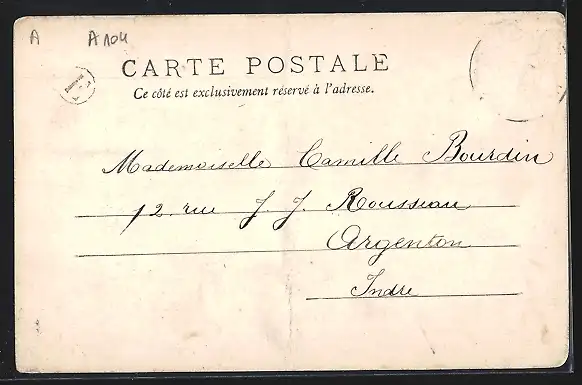 A A104
CARTE POSTALE
Ce côté est exclusivement réservé à l'adresse.
Mademoiselle Camille Bourdin
12 rue J. J. Rousseau
Argenton
Indre